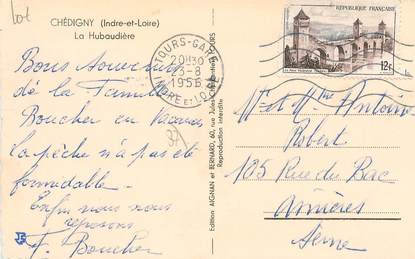 lot
CHÉDIGNY (Indre-et-Loire)
La Hubaudière
TOURS-GARE
20H30
23-8
1956
INDRE ET LOIRE
RÉPUBLIQUE FRANÇAISE
12F
Bons Souvenirs
de la Famille
Boucher en Vacances
La pêche n'a pas été
formidable -
Enfin nous nous
reposons
F. Boucher
37
Edition AIGNAN et BERNARD, 60, rue Jules TOURS
Reproduction interdite
M et Mme Antoine
Robert
185 Rue du Bac
Asnières
Seine